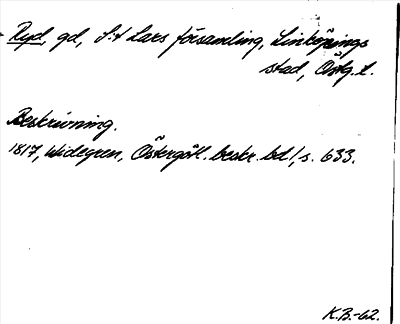 Ryd, gd, S:t Lars församling, Linköpings
stad, Östg. l.
Beskrivning.
1817, Widegren, Östergötl. beskr. bd 1, s. 633.
K.B.-62.